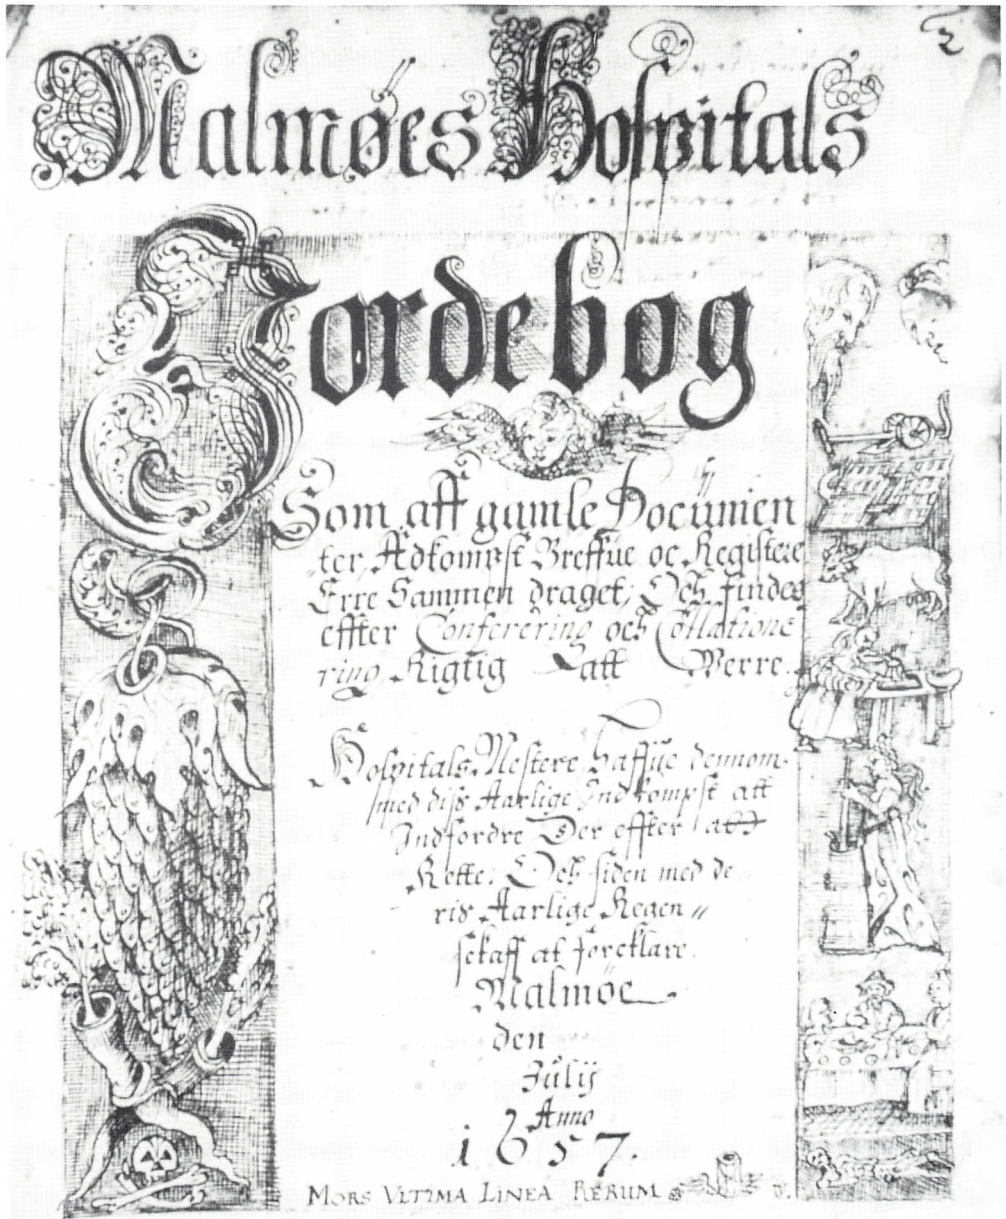 2
Malmøes Hospitals
Jordebog
Som aff gamle Documen
ter, Adkompst Breffue oc Registere
Erre Sammen draget, Och findes
effter Conferering och Collatione
ring Rigtig att Werre.
Hospitals Mestere haffue dennom
med diss Aarlige Indkompst att
Indfordre Der effter att
Rette. Och siden med de
ris Aarlige Regen〃
schaff at foreklare.
Malmøe
den
Julij
Anno
1657
MORS VLTIMA LINEA RERUM